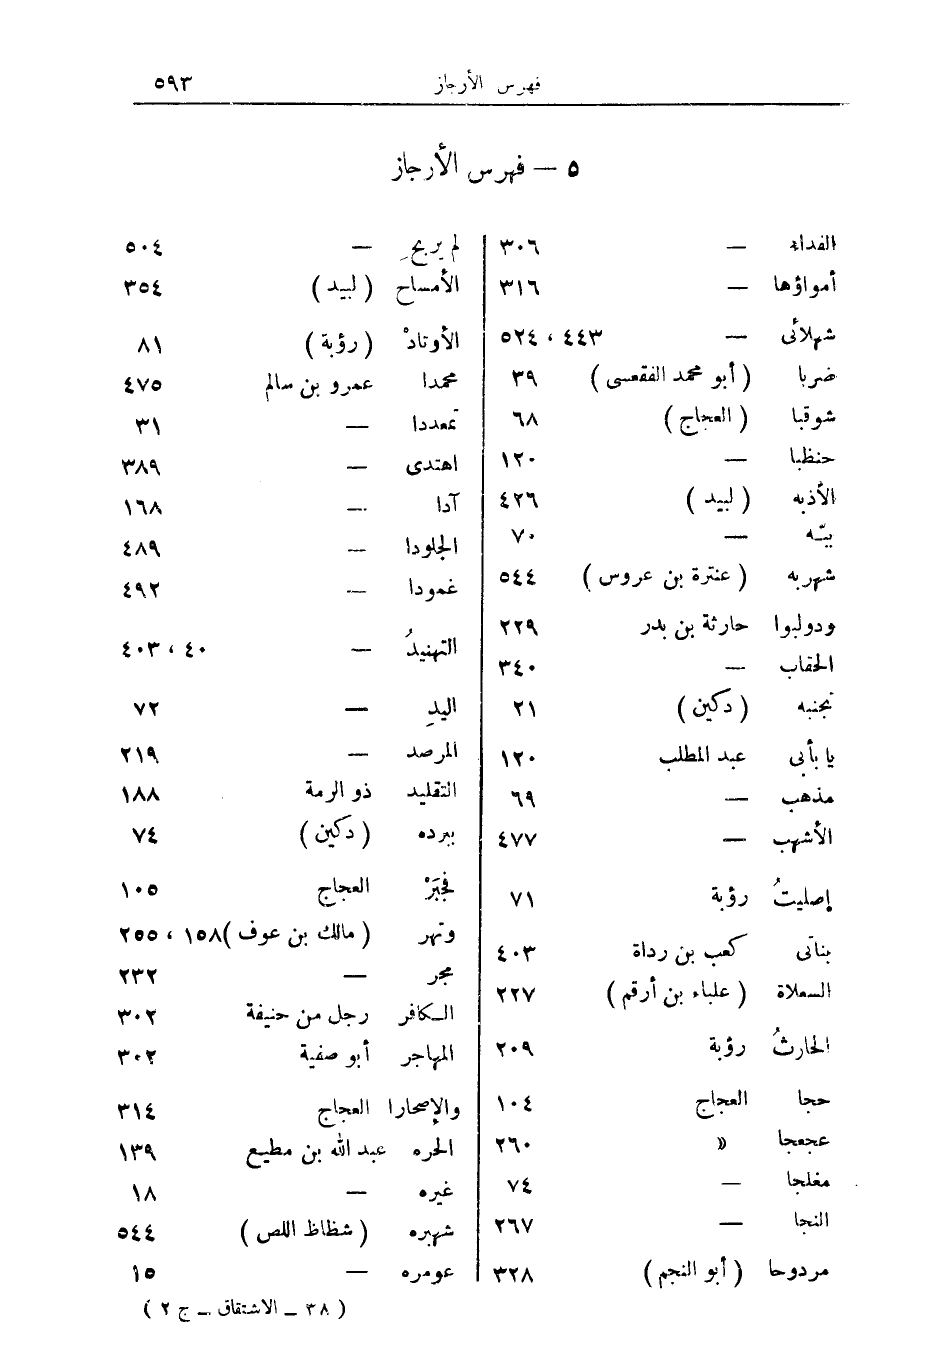 فهرس الأرجاز ٥٩٣
٥ — فهرس الأرجاز
الفداء — ٣٠٦
أمواؤها — ٣١٦
شهلائى — ٤٤٣ ، ٥٢٤
ضربا ( أبو محمد الفقعسى ) ٣٩
شوقبا ( العجاج ) ٦٨
حنظبا — ١٢٠
الأذبه ( لبيد ) ٤٢٦
ببّه — ٧٠
شهربه ( عنترة بن عروس ) ٥٤٤
ودولبوا حارثة بن بدر ٢٢٩
الحقاب — ٣٤٠
تجنبه ( دكين ) ٢١
يا بأبى عبد المطلب ١٢٠
مذهب — ٦٩
الأشهب — ٤٧٧
إصليتُ رؤبة ٧١
بناتى كعب بن رداة ٤٠٣
السعلاة ( علباء بن أرقم ) ٢٢٧
الحارثُ رؤبة ٢٠٩
حجا العجاج ١٠٤
عجعجا » ٢٦٠
مغلجا — ٧٤
النجا — ٢٦٧
مردوحا ( أبو النجم ) ٣٢٨
لم يربحِ — ٥٠٤
الأمساح ( لبيد ) ٣٥٤
الأوتادْ ( رؤبة ) ٨١
محمدا عمرو بن سالم ٤٧٥
تمعددا — ٣١
اهتدى — ٣٨٩
آدا — ١٦٨
الجلودا — ٤٨٩
غمودا — ٤٩٢
التهنيدُ — ٤٠ ، ٤٠٣
اليدِ — ٧٢
المرصد — ٢١٩
التقليد ذو الرمة ١٨٨
ببرده ( دكين ) ٧٤
فجبَرْ العجاج ١٠٥
وتهر ( مالك بن عوف ) ١٥٨ ، ٢٥٥
مجر — ٢٣٢
الكافر رجل من حنيفة ٣٠٢
المهاجر أبو صفية ٣٠٢
والإصحارا العجاج ٣١٤
الحره عبد الله بن مطيع ١٣٩
غيره — ١٨
شهبره ( شظاظ اللص ) ٥٤٤
عومره — ١٥
( ٣٨ — الاشتقاق — ج ٢ )